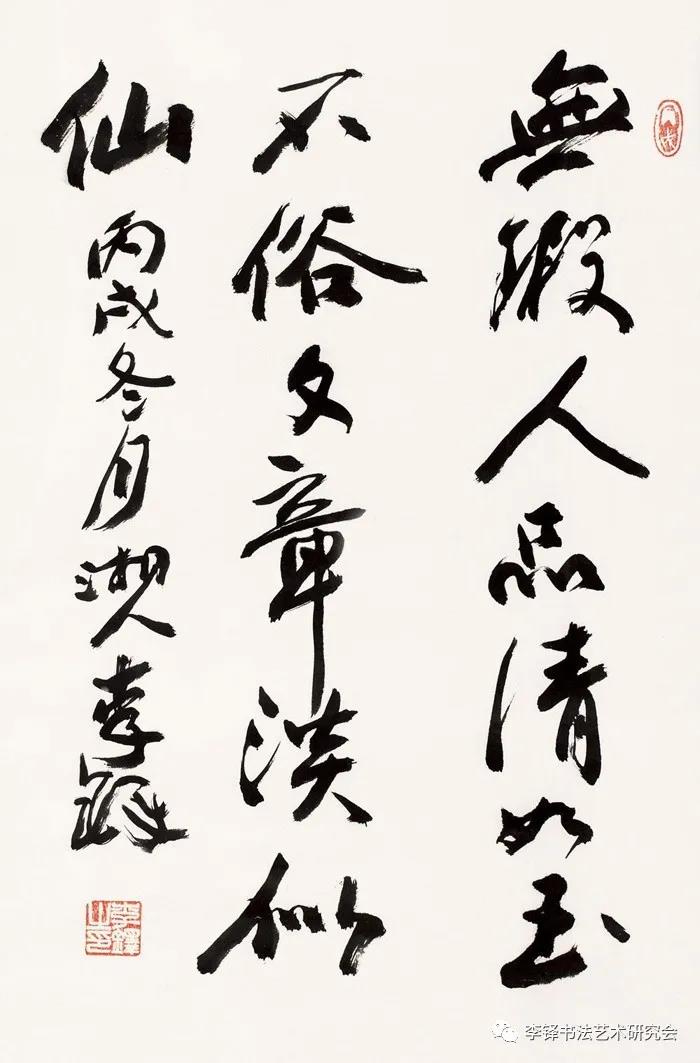 無瑕人品清如玉
不俗文章淡似
仙
丙戌冬月湘人李鐸
李鐸之印
李铎书法艺术研究会